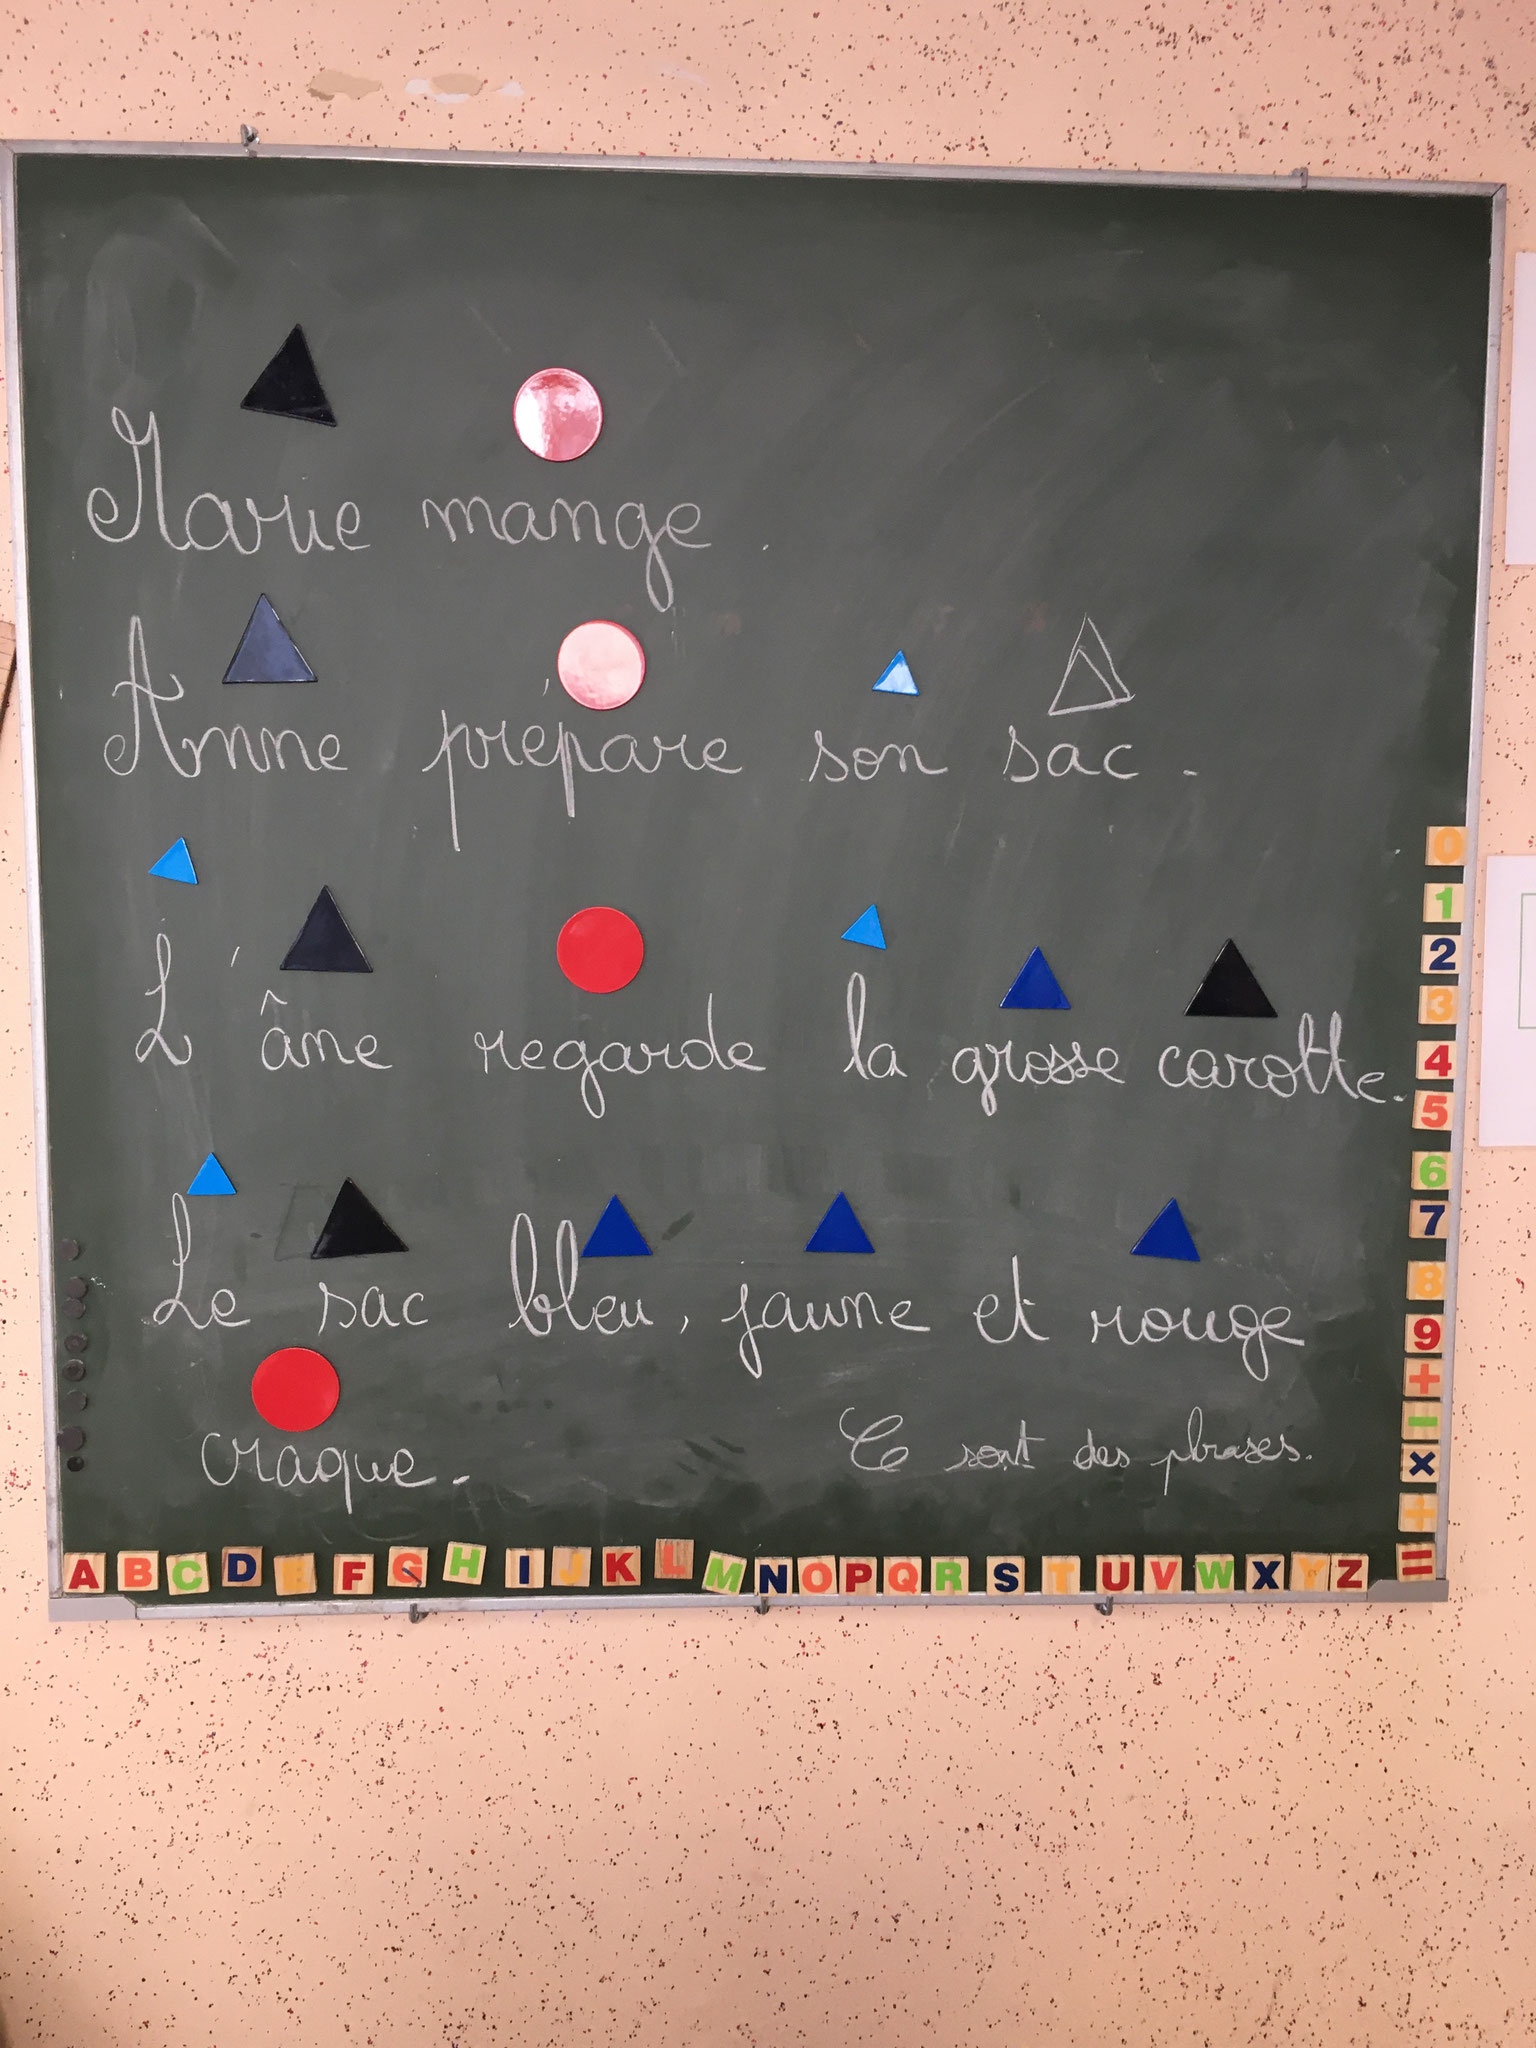 Marie mange.
Anne prépare son sac.
L'âne regarde la grosse carotte.
Le sac bleu, jaune et rouge
craque.
Ce sont des phrases.
0
1
2
3
4
5
6
7
8
9
+
-
x
÷
=
A B C D E F G H I J K L M N O P Q R S T U V W X Y Z